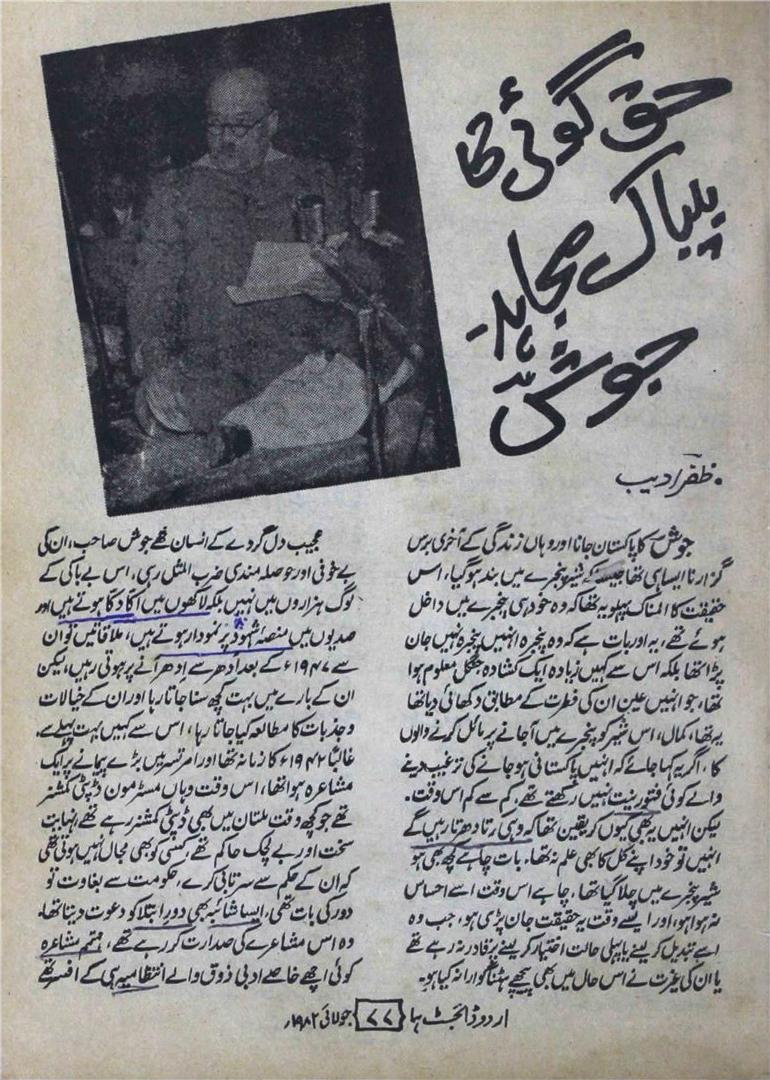 حق گوئی کا
بیباک مجاہد۔
جوشؔ
• ظفر ادیب
جوشؔ کا پاکستان جانا اور وہاں زندگی کے آخری برس
گزارنا ایسا ہی تھا جیسے کہ شیر پنجرے میں بند ہو گیا، اس
حقیقت کا المناک پہلو یہ تھا کہ وہ خود ہی پنجرے میں داخل
ہوئے تھے، یہ اور بات ہے کہ وہ پنجرہ انہیں پنجرہ نہیں جان
پڑا تھا بلکہ اس سے کہیں زیادہ ایک کشادہ جنگل معلوم ہوا
تھا، جو انہیں عین ان کی فطرت کے مطابق دکھائی دیا تھا
یہ تھا، کمال، اس شیر کو پنجرے میں آجانے پر مائل کرنے والوں
کا، اگر یہ کہا جائے کہ انہیں پاکستانی ہو جانے کی ترغیب دینے
والے کوئی فتورِ نیت نہیں رکھتے تھے، کم سے کم اس وقت۔
لیکن انہیں یہ بھی کیوں کر یقین تھا کہ وہی کرتا دھرتا رہیں گے
انہیں تو خود اپنے کل کا بھی علم نہ تھا۔ بات چاہے کچھ بھی ہو
شیر پنجرے میں چلا گیا تھا، چاہے اس وقت اسے احساس
نہ ہوا ہو، اور ایسے وقت یہ حقیقت جان پڑی ہو، جب وہ
اسے تبدیل کر لینے یا پہلی حالت اختیار کر لینے پر قادر نہ رہے تھے
یا ان کی غیرت نے اس حال میں بھی پیچھے ہٹنا گوارا نہ کیا ہو۔
عجیب دل گردے کے انسان تھے جوش صاحب، ان کی
بے خوفی اور حوصلہ مندی ضرب المثل رہی، اس بے باکی کے
لوگ ہزاروں میں نہیں بلکہ لاکھوں میں اکا دکا ہوتے ہیں اور
صدیوں میں منصۂ شہود پر نمودار ہوتے ہیں، ملاقاتیں تو ان
سے ۱۹۴۷ء کے بعد ادھر سے اِدھر آنے پر ہوتی رہیں، لیکن
ان کے بارے میں بہت کچھ سنا جاتا رہا اور ان کے خیالات
و جذبات کا مطالعہ کیا جاتا رہا، اس سے کہیں بہت پہلے سے،
غالباً ۱۹۴۲ء کا زمانہ تھا اور امرتسر میں بڑے پیمانے پر ایک
مشاعرہ ہوا تھا، اس وقت وہاں مسٹر مون ڈپٹی کمشنر
تھے جو کچھ وقت ملتان میں بھی ڈپٹی کمشنر رہے تھے، نہایت
سخت اور بے لچک حاکم تھے، کسی کو بھی مجال نہیں ہوتی تھی
کہ ان کے حکم سے سرتابی کرے، حکومت سے بغاوت تو
دور کی بات تھی، ایسا شائبہ بھی دورِ ابتلا کو دعوت دینا تھا۔
وہ اس مشاعرے کی صدارت کر رہے تھے، مہتمم مشاعرہ
کوئی اچھے خاصے ادبی ذوق والے انتظامیہ ہی کے افسر تھے
اردو ڈائجسٹ ہما ۷۷ جولائی ۱۹۸۲ء